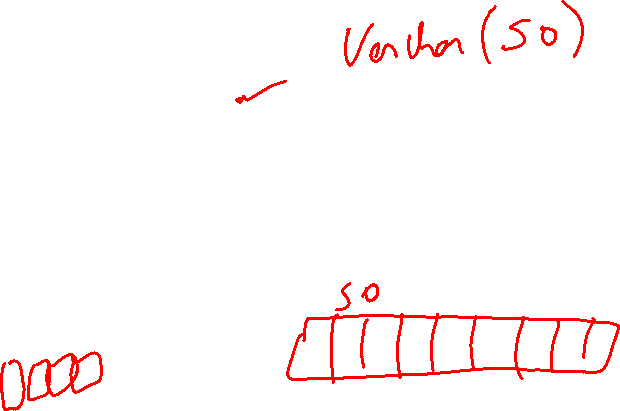 Varchar(50)
50